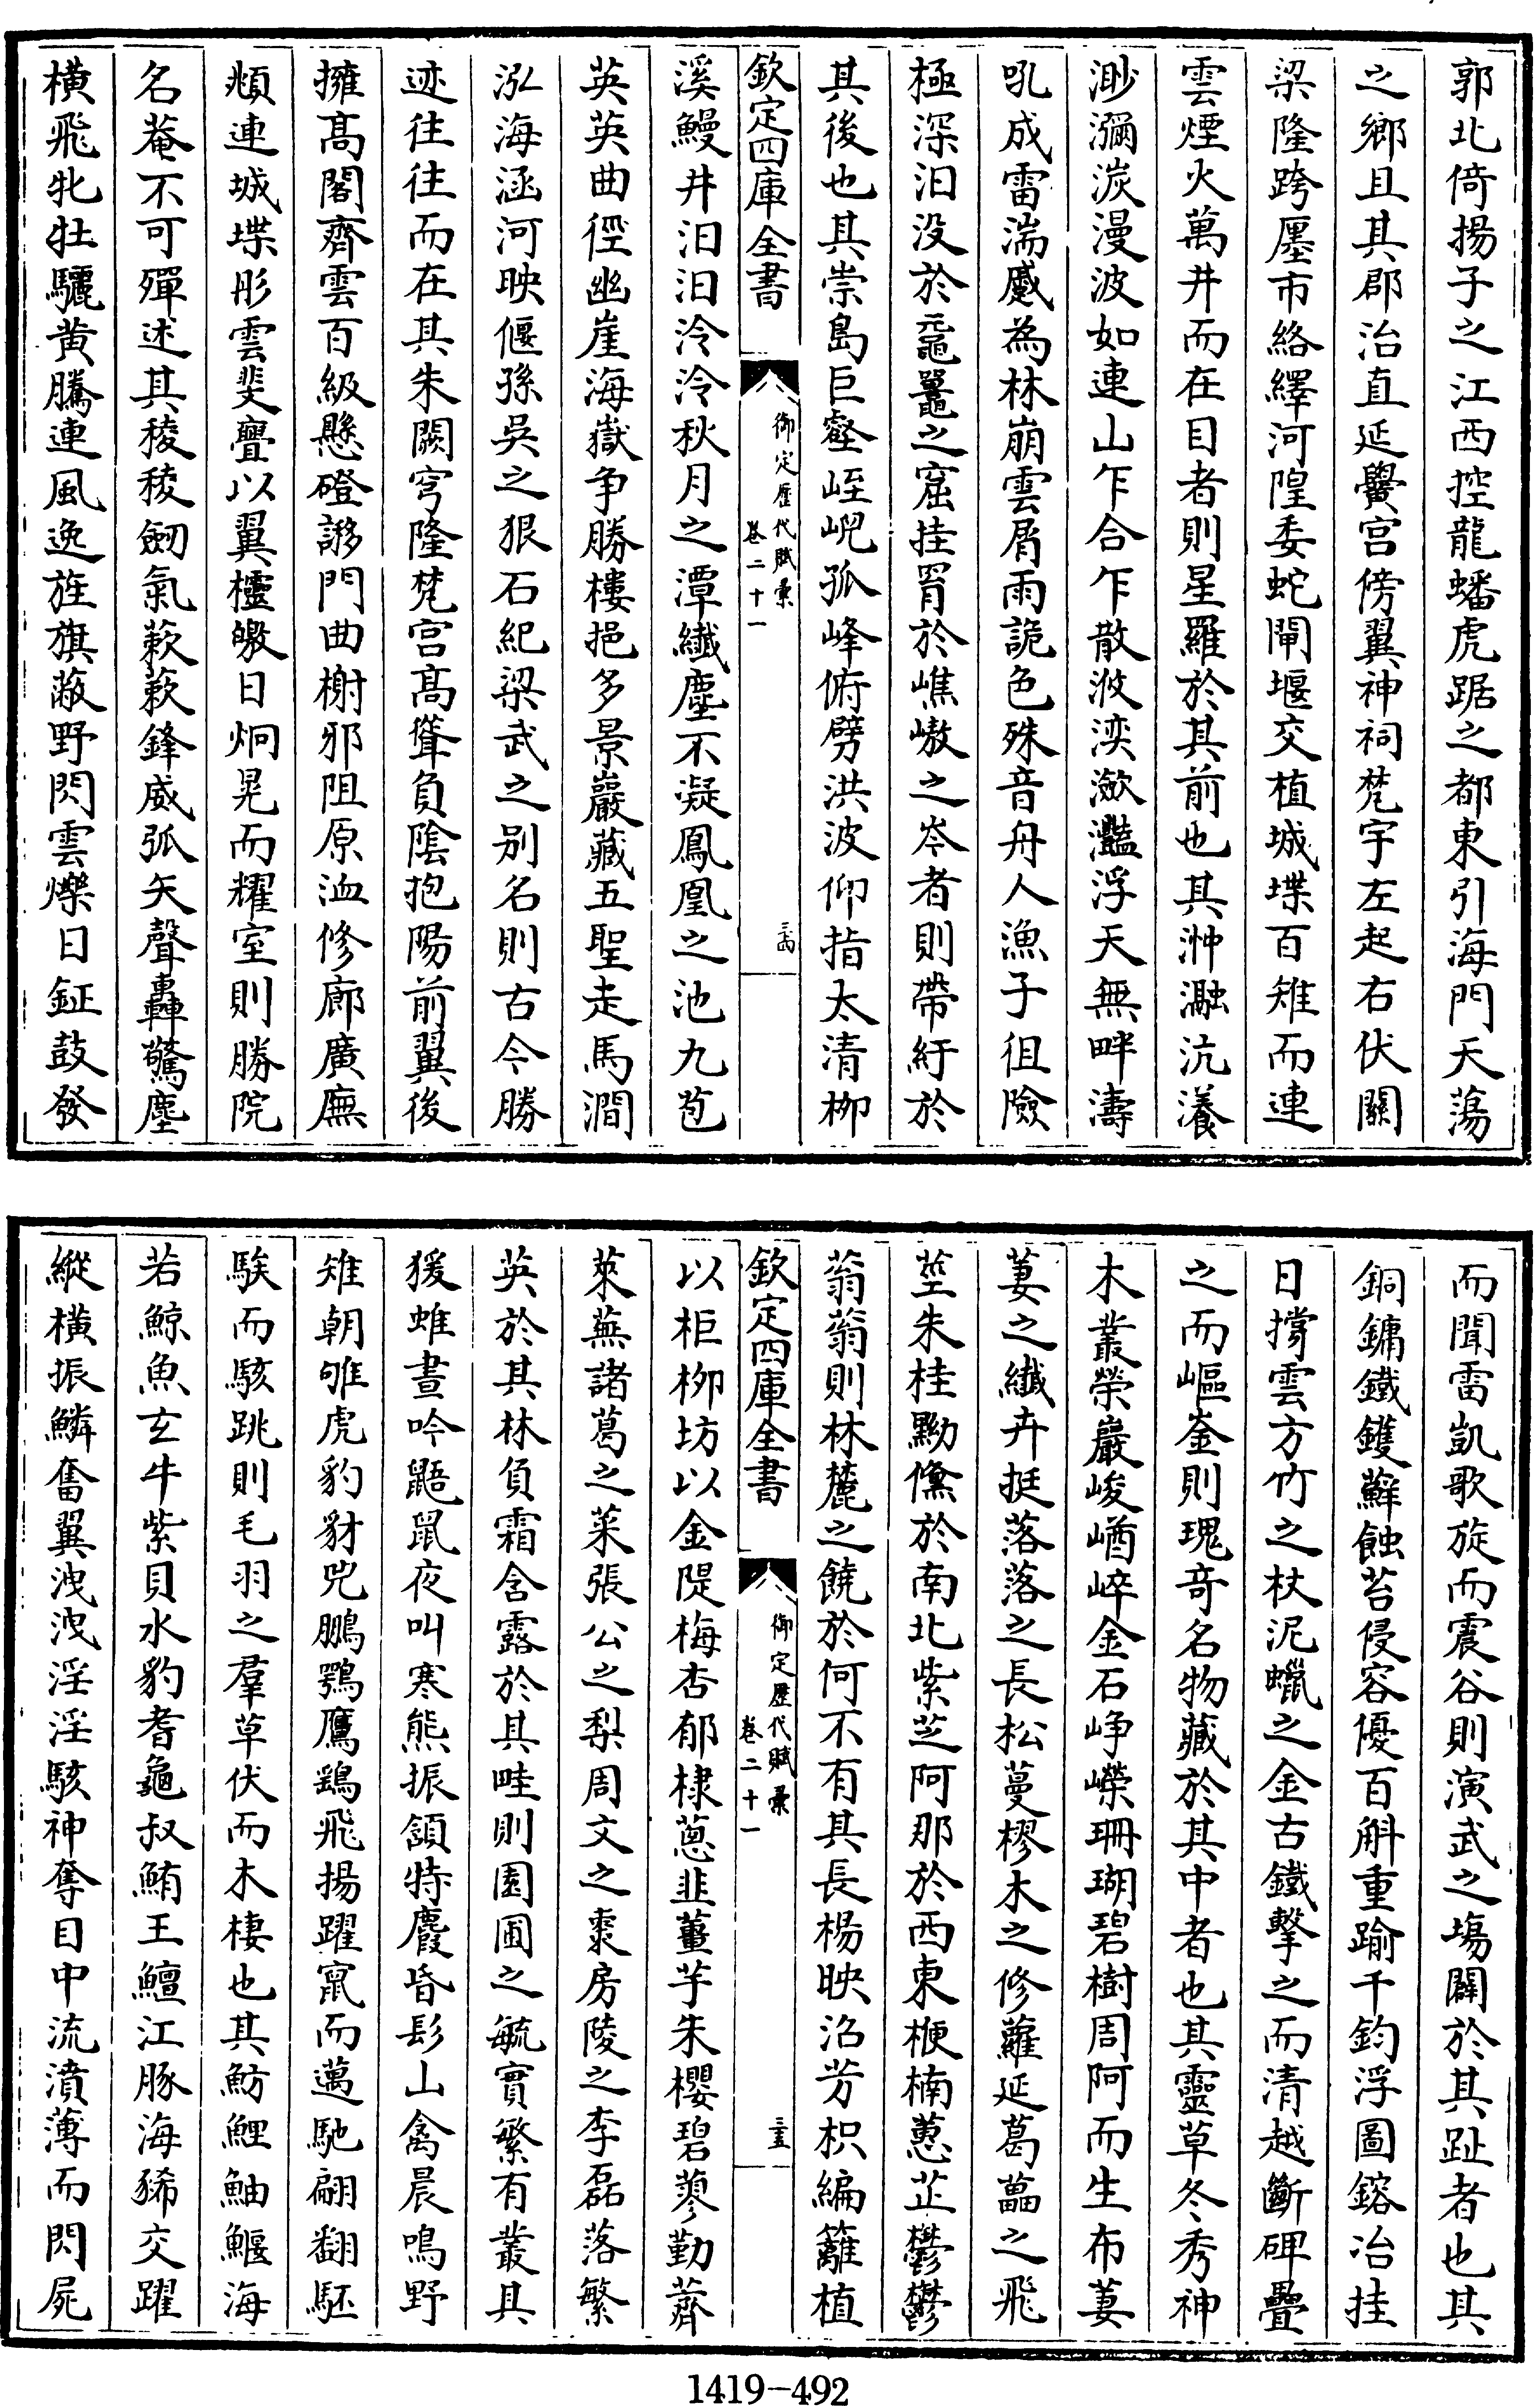 郭北倚揚子之江西控龍蟠虎踞之都東引海門天蕩
之鄉且其郡治直延黌宫傍翼神祠梵宇左起右伏關
梁隆跨廛市絡繹河隍委蛇閘堰交植城堞百雉而連
雲煙火萬井而在目者則星羅於其前也其浺瀜沆瀁
渺瀰湠漫波如連山乍合乍散淤湙瀲灩浮天無畔濤
吼成雷湍蹙為林崩雲屑雨詭色殊音舟人漁子徂險
極深汩没於黿鼉之窟挂罥於嶕嶅之岑者則帶紆於
其後也其崇島巨壑峌𡴎孤峰俯劈洪波仰指太清栁
欽定四庫全書
御定歷代賦彙
卷二十一
三四
溪鰻井汩汩泠泠秋月之潭纖塵不凝鳳凰之池九苞
英英曲徑幽崖海嶽争勝樓挹多景巖藏五聖走馬澗
泓海涵河映偃孫吳之狠石紀梁武之别名則古今勝
迹往往而在其朱闕穹隆梵宫髙聳負陰抱陽前翼後
擁髙閣齊雲百級懸磴謻門曲榭邪阻原洫修廊廣廡
頫連城堞彤雲斐亹以翼櫺皦日炯晃而耀室則勝院
名菴不可殫述其稜稜劒氣蔌蔌鋒威弧矢聲轟驚塵
横飛牝牡驪黄騰連風逸旌旗蔽野閃雲爍日鉦鼓發
而聞雷凱歌旋而震谷則演武之塲闢於其趾者也其
銅鏞鐵鑊蘚蝕苔侵容優百斛重踰千鈞浮圖鎔冶挂
日撐雲方竹之杖泥蠟之金古鐵擊之而清越斷碑疊
之而嶇崟則瑰竒名物藏於其中者也其靈草冬秀神
木叢榮巖峻崷崪金石崢嶸珊瑚碧樹周阿而生布萋
萋之纖卉挺落落之長松蔓樛木之修蘿延葛藟之飛
莖朱桂黝儵於南北紫芝阿那於西東楩楠蔥芷鬱鬱
蓊蓊則林麓之饒於何不有其長楊映沼芳枳編籬植
欽定四庫全書
御定歷代賦彙
卷二十一
三五
以柜栁坊以金隄梅杏郁棣蔥韭薑芋朱櫻碧蓼勤薺
萊蕪諸葛之菜張公之梨周文之棗房陵之李磊落繁
英於其林負霜含露於其畦則園圃之毓實繁有叢其
猨蜼晝吟鼯鼠夜叫寒熊振頷特麚昏髟山禽晨鳴野
雉朝雊虎豹豺兕鵬鶚鷹鷂飛揚躍竄而邁馳翩翻駓
騃而駭跳則毛羽之羣草伏而木棲也其魴鯉鮋鰋海
若鯨魚玄牛紫貝水豹耆龜叔鮪王鱣江豚海豨交躍
縱横振鱗奮翼洩洩淫淫駭神奪目中流濆薄而閃屍
1419-492